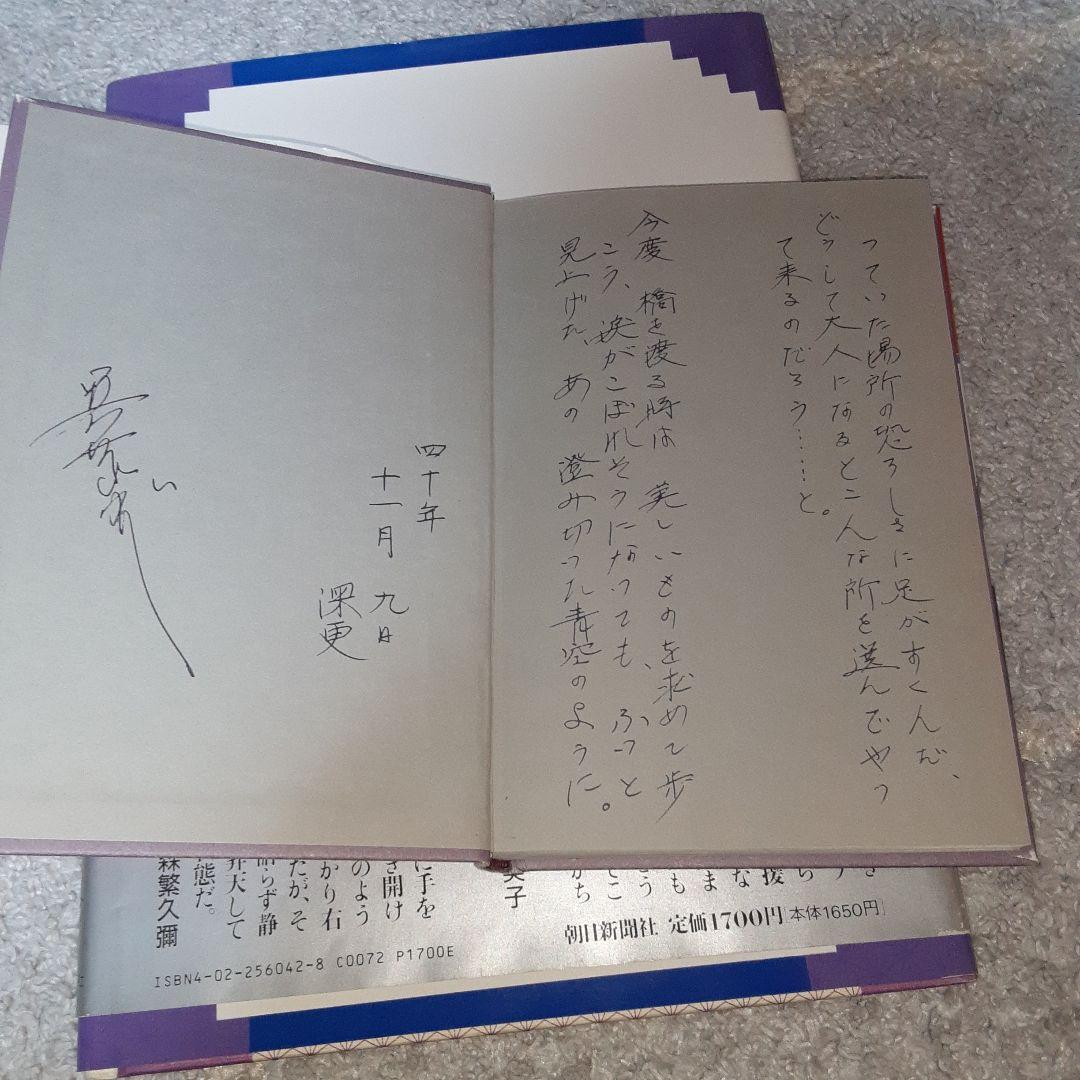 っていた場所の恐ろしさに足がすくんだ、
どうして大人になるとこんな所を選んでやっ
て来るのだろう……と
今度 橋を渡る時は 美しいものを、求めて歩
こう、涙がこぼれそうになっても、ふっと
見上げた、あの 澄み切った青空のように。
四十年
十一月 九日
深更
い
英子
に手を
のよう
き開け
がり右
だが、そ
らず静
大して
態だ。
森繁久彌
朝日新聞社 定価1700円 本体1650円
ISBN4-02-256042-8 C0072 P1700E